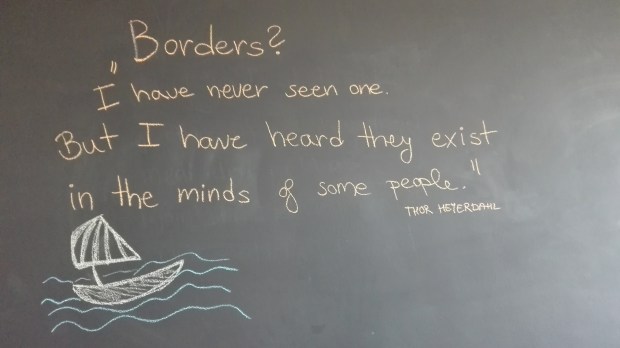 Borders?
„I have never seen one.
But I have heard they exist
in the minds of some people."
THOR HEYERDAHL